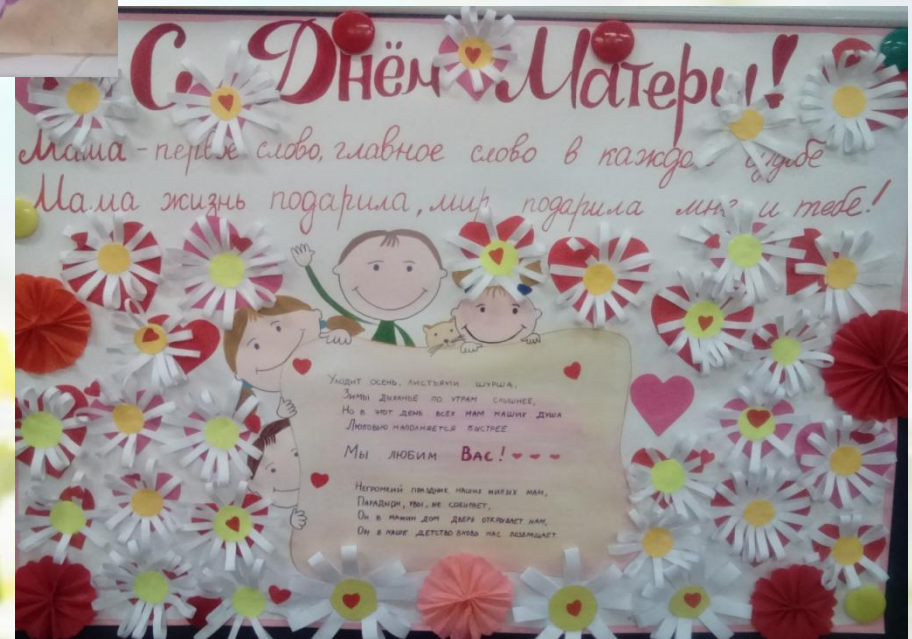 С Днём Матери!
Мама - первое слово, главное слово в каждой судьбе
Мама жизнь подарила, мир подарила мне и тебе!
Уходит осень, листьями шурша,
Зимы дыханье по утрам слышнее,
Но в этот день всех мам наших душа
Любовью наполняется быстрее
Мы любим Вас!
Негромкий праздник наших милых мам,
Парадном, увы, не собирает,
Он в мамин дом дверь открывает нам,
Он в наше детство вновь нас возвращает